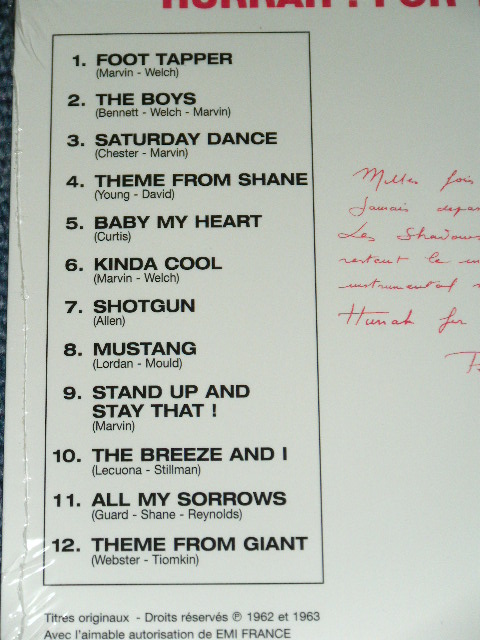 HURRAH ! FOR
1. FOOT TAPPER
(Marvin - Welch)
2. THE BOYS
(Bennett - Welch - Marvin)
3. SATURDAY DANCE
(Chester - Marvin)
4. THEME FROM SHANE
(Young - David)
5. BABY MY HEART
(Curtis)
6. KINDA COOL
(Marvin - Welch)
7. SHOTGUN
(Allen)
8. MUSTANG
(Lordan - Mould)
9. STAND UP AND
STAY THAT !
(Marvin)
10. THE BREEZE AND I
(Lecuona - Stillman)
11. ALL MY SORROWS
(Guard - Shane - Reynolds)
12. THEME FROM GIANT
(Webster - Tiomkin)
Milles fois
Jamais
Les Shadows
restent le
instrumental
Hurrah for
Titres originaux - Droits réservés ℗ 1962 et 1963
Avec l'aimable autorisation de EMI FRANCE